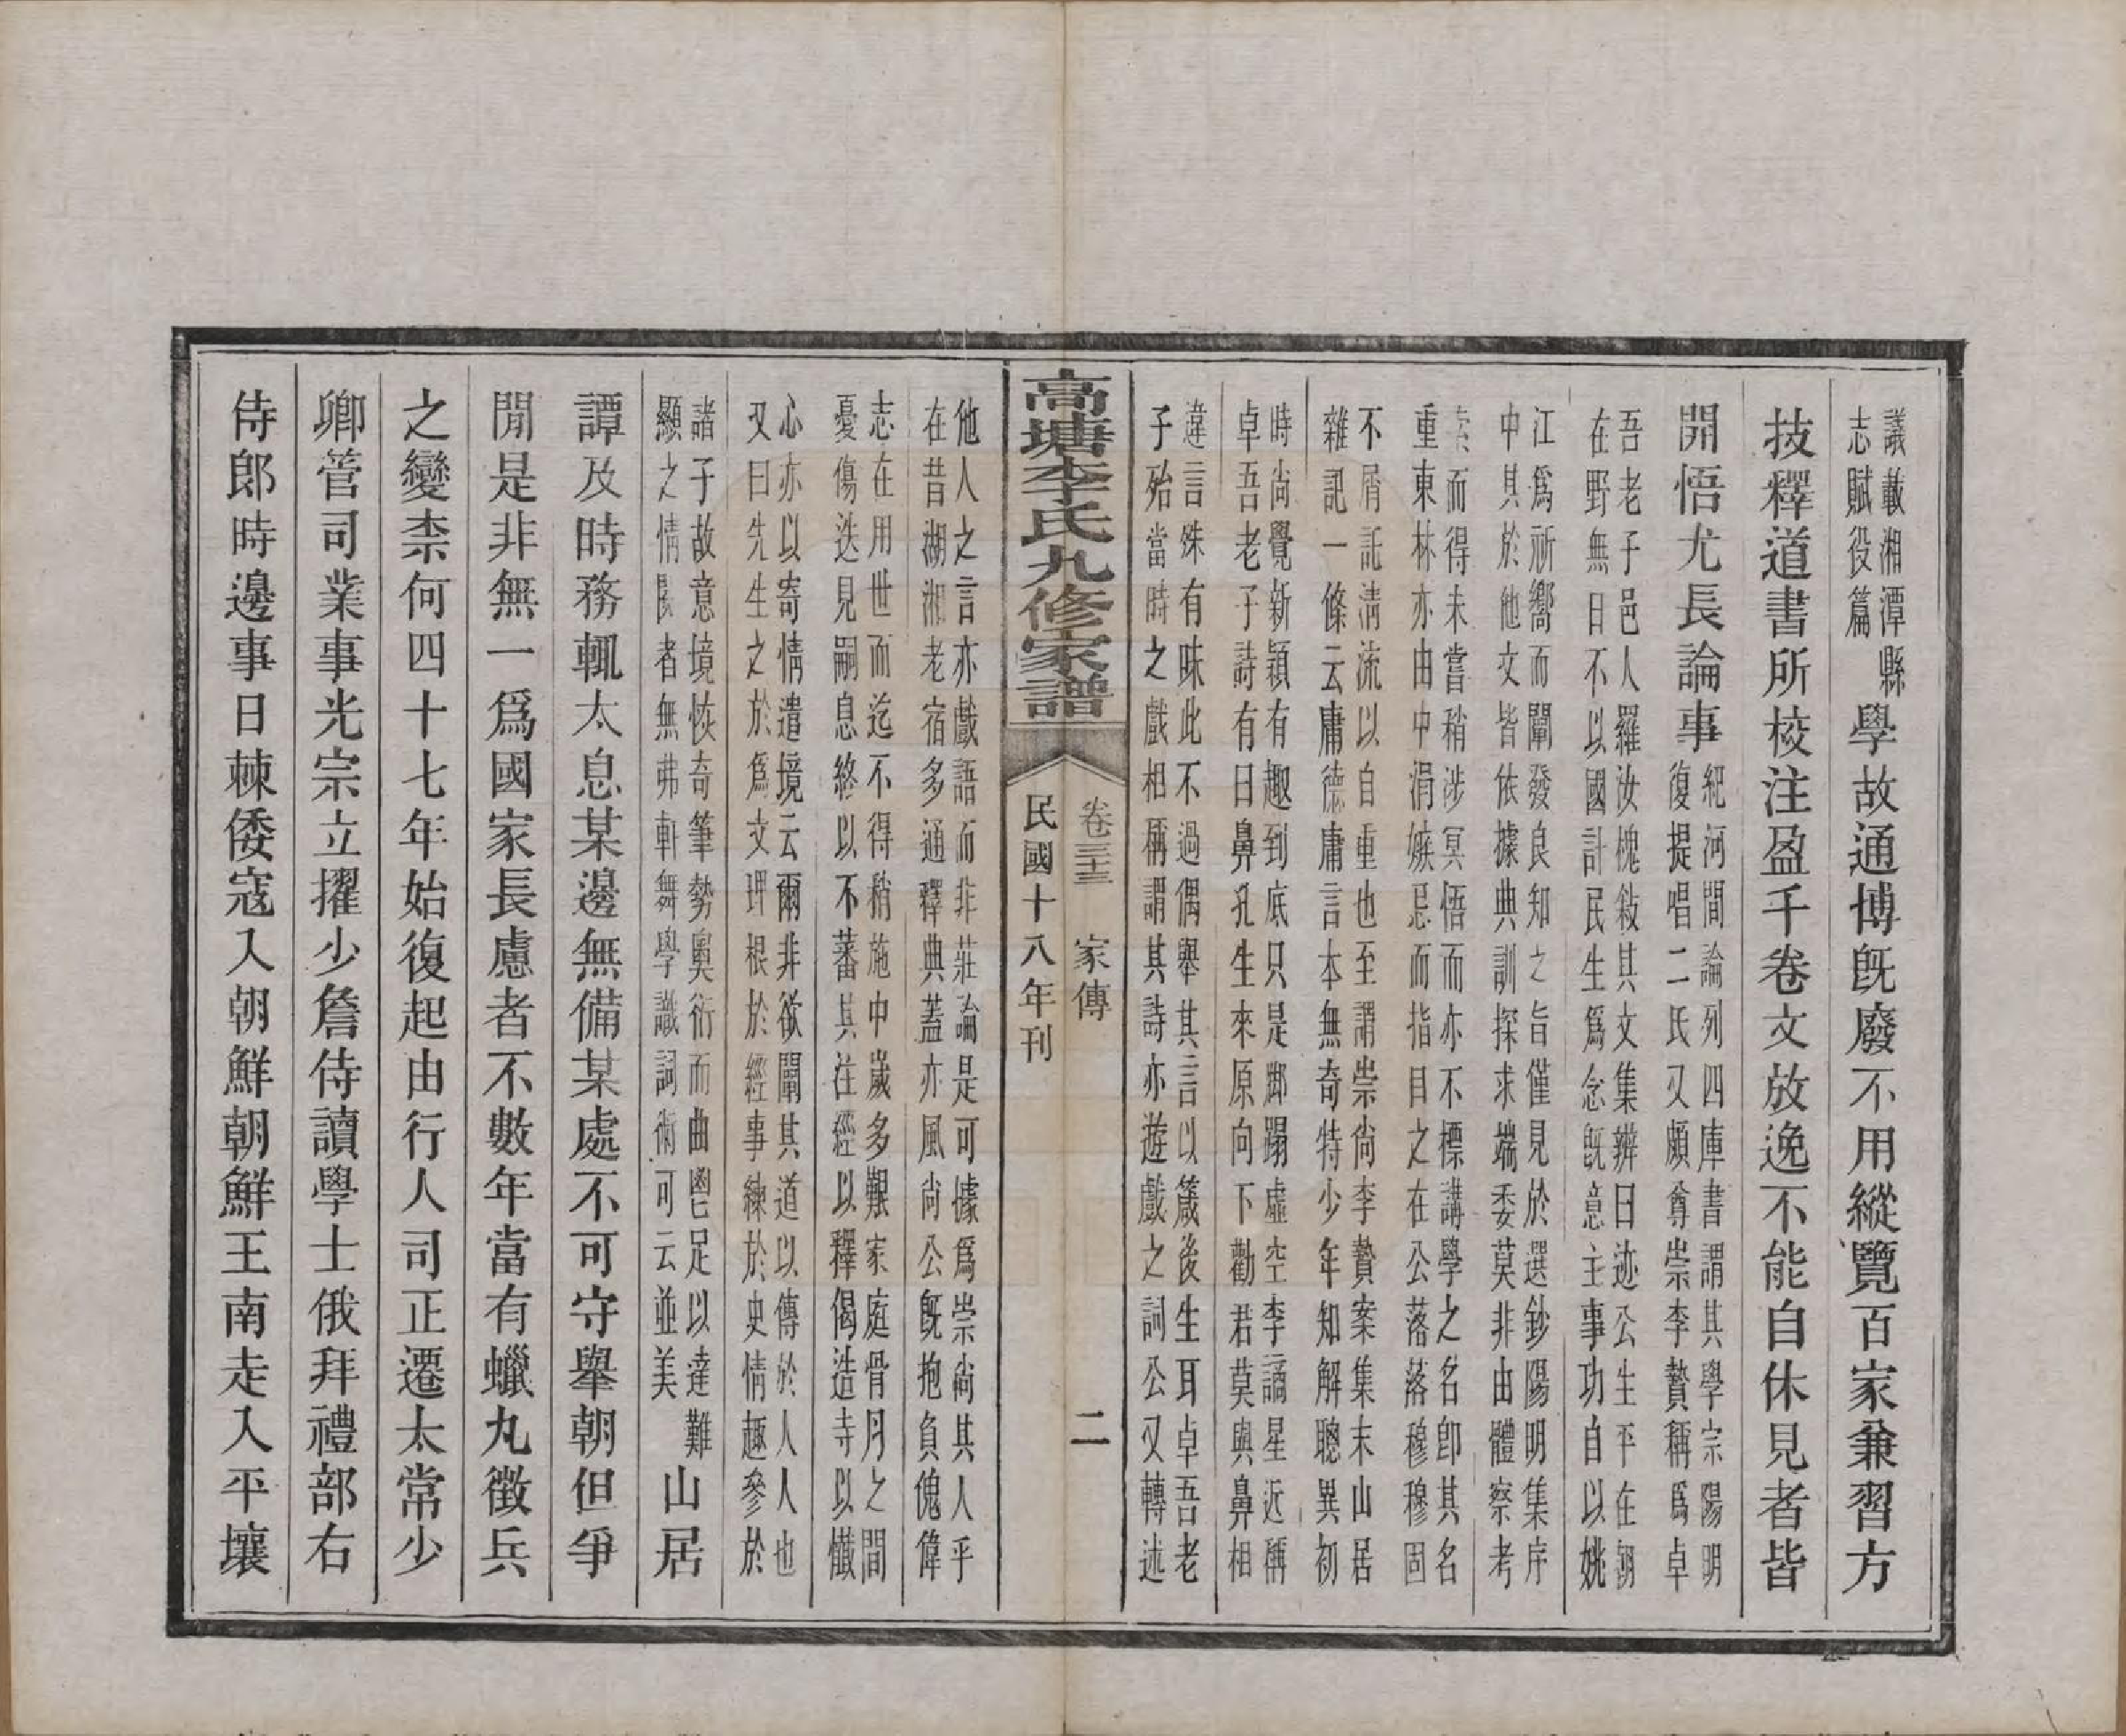 議載湘潭縣志賦役篇學故通博旣廢不用縱覽百家兼習方
技釋道書所校注盈千卷文放逸不能自休見者皆
開悟尤長論事紀河間論列四庫書謂其學宗陽明復提唱二氏又頗尊崇李贄稱爲卓
吾老子邑人羅汝槐敍其文集辨曰迹公生平在朝在野無日不以國計民生爲念旣意主事功自以姚
江爲所嚮而闡發良知之旨僅見於選鈔陽明集序中其於他文皆依據典訓探求端委莫非由體察考
索而得未嘗稍涉冥悟而亦不標講學之名卽其名重東林亦由中涓嫉忌而指目之在公落落穆穆固
不屑託淸流以自重也至謂崇尙李贄案集末山居雜記一條云庸德庸言本無奇特少年知解聰異初
時尙覺新穎有趣到底只是脚蹋虛空李謫星近稱卓吾老子詩有曰鼻孔生來原向下勸君莫與鼻相
違言殊有味此不過偶舉其言以箴後生耳卓吾老子殆當時之戲相稱謂其詩亦遊戲之詞公又轉述
高塘李氏九修家譜
卷三十三 家傳 二
民國十八年刊
他人之言亦戲語而非莊論是可據爲崇尙其人乎在昔湖湘老宿多通釋典蓋亦風尙公旣抱負傀偉
志在用世而迄不得稍施中歲多艱家庭骨月之間憂傷迭見嗣息終以不蕃其注經以釋偈造寺以懺
心亦以寄情遣境云爾非欲闡其道以傳於人人也又曰先生之於爲文理根於經事練於史情趣參於
諸子故意境恢奇筆勢奧衍而曲鬯足以達難顯之情閱者無弗軒舞學識詞術可云並美山居
譚及時務輒太息某邊無備某處不可守舉朝但爭
閒是非無一爲國家長慮者不數年當有蠟丸徵兵
之變柰何四十七年始復起由行人司正遷太常少
卿管司業事光宗立擢少詹侍讀學士俄拜禮部右
侍郎時邊事日棘倭寇入朝鮮朝鮮王南走入平壤